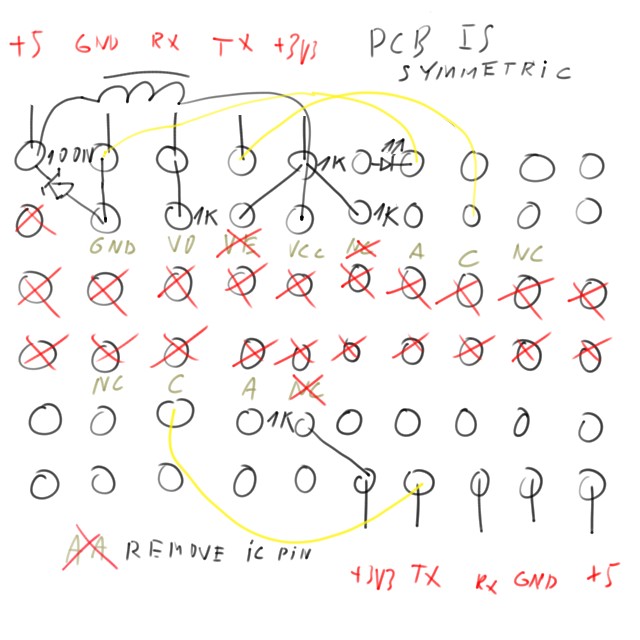 +5 GND RX TX +3V3 PCB IS
SYMMETRIC
100N 1K
1K 1K
GND VO VE VCC NC A C NC
NC C A NC
1K
AA REMOVE iC PiN
+3V3 TX RX GND +5